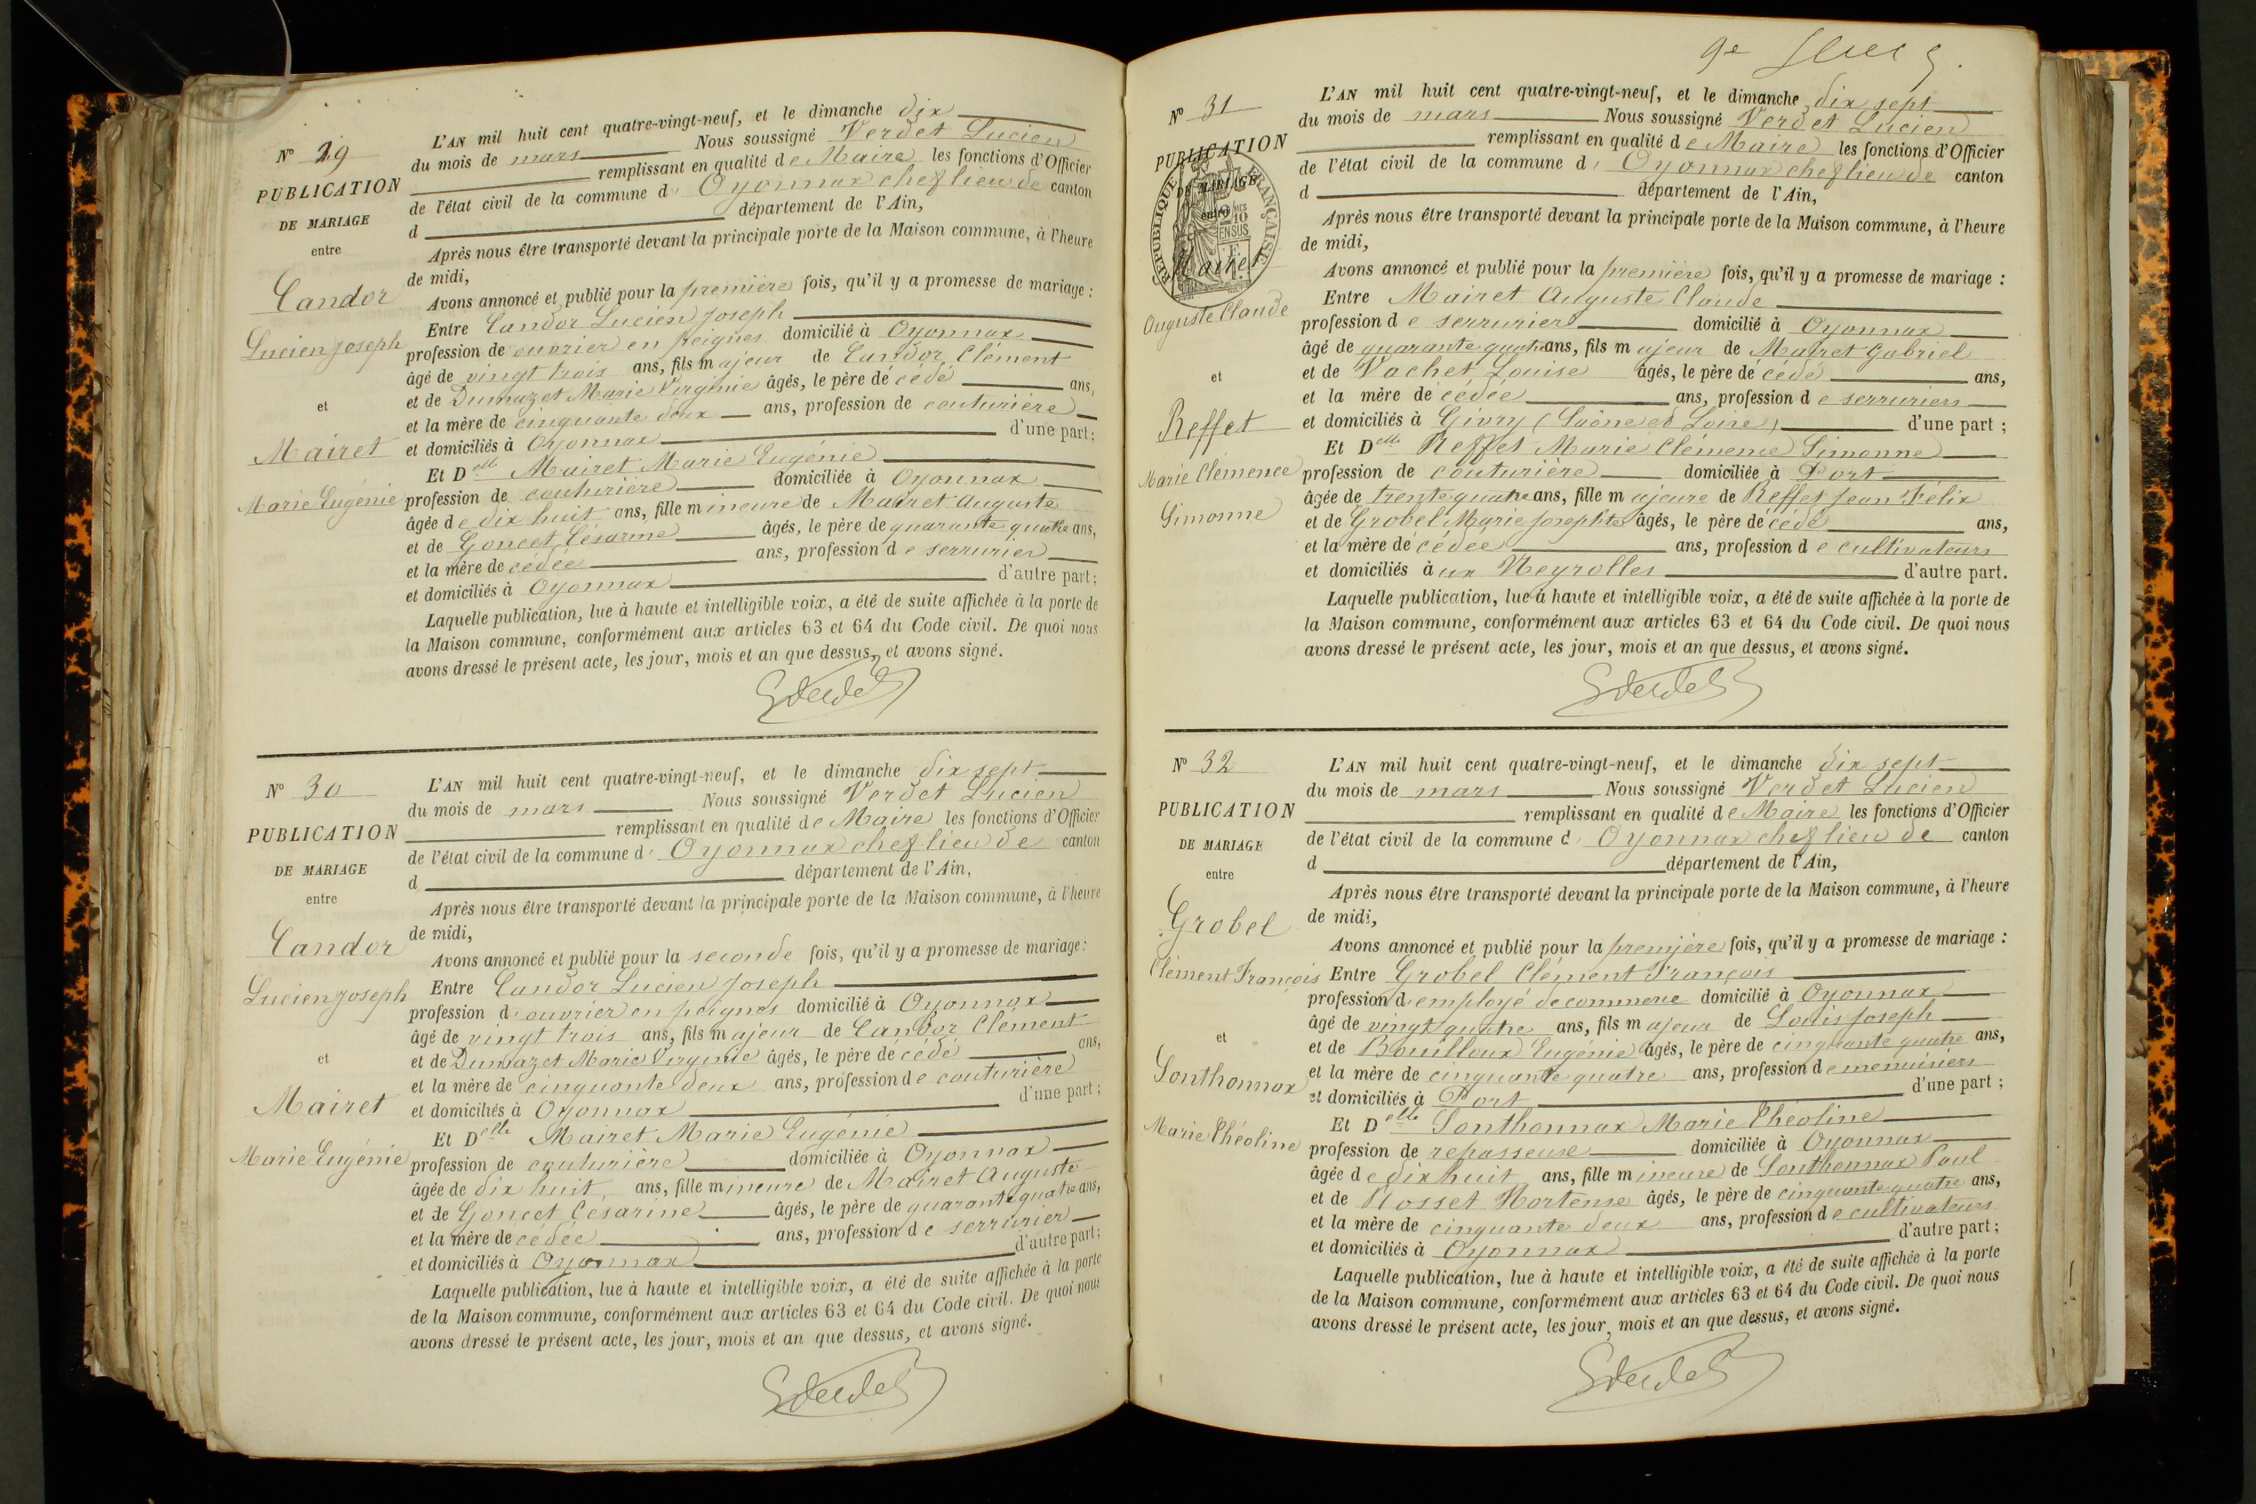 Nº 29
PUBLICATION
DE MARIAGE
entre
Candor
Lucien Joseph
et
Mairet
Marie Eugénie
L'AN mil huit cent quatre-vingt-neuf, et le dimanche dix
du mois de mars Nous soussigné Verdet Lucien
remplissant en qualité de Maire les fonctions d'Officier
de l'état civil de la commune d' Oyonnax chef lieu de canton
d département de l'Ain,
Après nous être transporté devant la principale porte de la Maison commune, à l'heure
de midi,
Avons annoncé et publié pour la première fois, qu'il y a promesse de mariage :
Entre Candor Lucien Joseph
profession de ouvrier en peignes domicilié à Oyonnax
âgé de vingt trois ans, fils majeur de Candor Clément
et de Dumazet Marie Virginie âgés, le père décédé ans,
et la mère de cinquante deux ans, profession de couturière
et domiciliés à Oyonnax d'une part ;
Et Delle Mairet Marie Eugénie
profession de couturière domiciliée à Oyonnax
âgée de dix huit ans, fille mineure de Mairet Auguste
et de Goncet Césarine âgés, le père de quarante quatre ans,
et la mère decédée ans, profession de serrurier
et domiciliés à Oyonnax d'autre part ;
Laquelle publication, lue à haute et intelligible voix, a été de suite affichée à la porte de
la Maison commune, conformément aux articles 63 et 64 du Code civil. De quoi nous
avons dressé le présent acte, les jour, mois et an que dessus, et avons signé.
Nº 30
PUBLICATION
DE MARIAGE
entre
Candor
Lucien Joseph
et
Mairet
Marie Eugénie
L'AN mil huit cent quatre-vingt-neuf, et le dimanche dix sept
du mois de mars Nous soussigné Verdet Lucien
remplissant en qualité de Maire les fonctions d'Officier
de l'état civil de la commune d' Oyonnax chef lieu de canton
d département de l'Ain,
Après nous être transporté devant la principale porte de la Maison commune, à l'heure
de midi,
Avons annoncé et publié pour la seconde fois, qu'il y a promesse de mariage :
Entre Candor Lucien Joseph
profession d'ouvrier en peignes domicilié à Oyonnax
âgé de vingt trois ans, fils majeur de Candor Clément
et de Dumazet Marie Virginie âgés, le père décédé ans,
et la mère de cinquante deux ans, profession de couturière
et domiciliés à Oyonnax d'une part ;
Et Delle Mairet Marie Eugénie
profession de couturière domiciliée à Oyonnax
âgée de dix huit ans, fille mineure de Mairet Auguste
et de Goncet Césarine âgés, le père de quarante quatre ans,
et la mère decédée ans, profession de serrurier
et domiciliés à Oyonnax d'autre part ;
Laquelle publication, lue à haute et intelligible voix, a été de suite affichée à la porte
de la Maison commune, conformément aux articles 63 et 64 du Code civil. De quoi nous
avons dressé le présent acte, les jour, mois et an que dessus, et avons signé.
9e
Nº 31
PUBLICATION
DE MARIAGE
entre
RÉPUBLIQUE FRANÇAISE
Mairet
Auguste Claude
et
Reffet
Marie Clémence
Simonne
L'AN mil huit cent quatre-vingt-neuf, et le dimanche dix sept
du mois de mars Nous soussigné Verdet Lucien
remplissant en qualité de Maire les fonctions d'Officier
de l'état civil de la commune d' Oyonnax chef lieu de canton
d département de l'Ain,
Après nous être transporté devant la principale porte de la Maison commune, à l'heure
de midi,
Avons annoncé et publié pour la première fois, qu'il y a promesse de mariage :
Entre Mairet Auguste Claude
profession de serrurier domicilié à Oyonnax
âgé de quarante quatre ans, fils majeur de Mairet Gabriel
et de Vachet Louise âgés, le père décédé ans,
et la mère décédée ans, profession de serruriers
et domiciliés à Givry (Saône et Loire) d'une part ;
Et Delle Reffet Marie Clémence Simonne
profession de couturière domiciliée à Port
âgée de trente quatre ans, fille majeure de Reffet Jean Félix
et de Grobel Marie Josephte âgés, le père décédé ans,
et la mère décédée ans, profession de cultivateurs
et domiciliés aux Neyrolles d'autre part.
Laquelle publication, lue à haute et intelligible voix, a été de suite affichée à la porte de
la Maison commune, conformément aux articles 63 et 64 du Code civil. De quoi nous
avons dressé le présent acte, les jour, mois et an que dessus, et avons signé.
Nº 32
PUBLICATION
DE MARIAGE
entre
Grobel
Clément François
et
Sonthonnax
Marie Théoline
L'AN mil huit cent quatre-vingt-neuf, et le dimanche dix sept
du mois de mars Nous soussigné Verdet Lucien
remplissant en qualité de Maire les fonctions d'Officier
de l'état civil de la commune d' Oyonnax chef lieu de canton
d département de l'Ain,
Après nous être transporté devant la principale porte de la Maison commune, à l'heure
de midi,
Avons annoncé et publié pour la première fois, qu'il y a promesse de mariage :
Entre Grobel Clément François
profession d'employé de commerce domicilié à Oyonnax
âgé de vingt quatre ans, fils majeur de Louis Joseph
et de Bouilloux Eugénie âgés, le père de cinquante quatre ans,
et la mère de cinquante quatre ans, profession de menuisiers
et domiciliés à Port d'une part ;
Et Delle Sonthonnax Marie Théoline
profession de repasseuse domiciliée à Oyonnax
âgée de dix huit ans, fille mineure de Sonthonnax Paul
et de Rosset Hortense âgés, le père de cinquante quatre ans,
et la mère de cinquante deux ans, profession de cultivateurs
et domiciliés à Oyonnax d'autre part ;
Laquelle publication, lue à haute et intelligible voix, a été de suite affichée à la porte
de la Maison commune, conformément aux articles 63 et 64 du Code civil. De quoi nous
avons dressé le présent acte, les jour, mois et an que dessus, et avons signé.